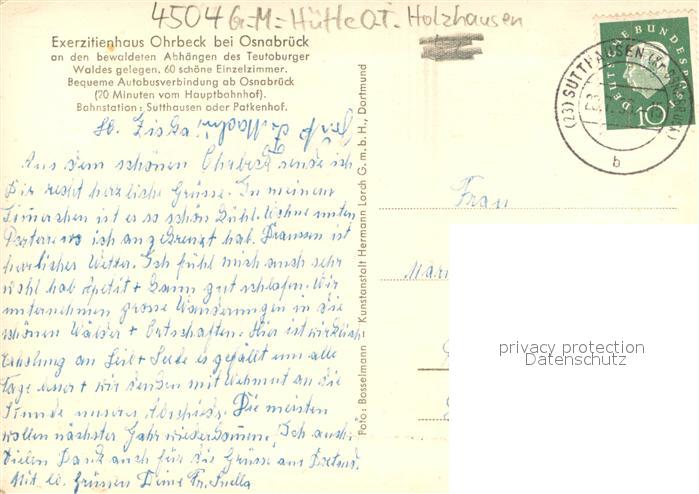 4504 G-M-Hütte O.T. Holzhausen
Exerzitienhaus Ohrbeck bei Osnabrück
an den bewaldeten Abhängen des Teutoburger
Waldes gelegen. 60 schöne Einzelzimmer.
Bequeme Autobusverbindung ab Osnabrück
(20 Minuten vom Hauptbahnhof).
Bahnstation: Sutthausen oder Patkenhof.
Lb. Ziska!
Aus dem schönen Ohrbeck sende ich
Dir recht herzliche Grüsse. In meinem
Zimerchen ist es so schön kühl. Wohne unten
Parterre wo ich angekreuzt hab. Draussen ist
herrliches Wetter. Ich fühl mich auch sehr
wohl hab Apetit + kann gut schlafen. Wir
unternehmen grosse Wanderungen in die
schönen Wälder + Ortschaften. Hier ist wirklich
Erholung an Leib + Seele es gefällt uns alle
Tage besser + wir denken mit Wehmut an die
Stunde unseres Abschieds. Die meisten
wollen nächstes Jahr wiederkommen, Ich auch.
Vielen Dank auch für die Grüsse aus
Mit lb. Grüssen Deine Fr.
Foto: Bosselmann - Kunstanstalt Hermann Lorch G.m.b.H., Dortmund
DEUTSCHE BUNDESPOST
10
(23) SUTTHAUSEN
b
Frau
privacy protection
Datenschutz